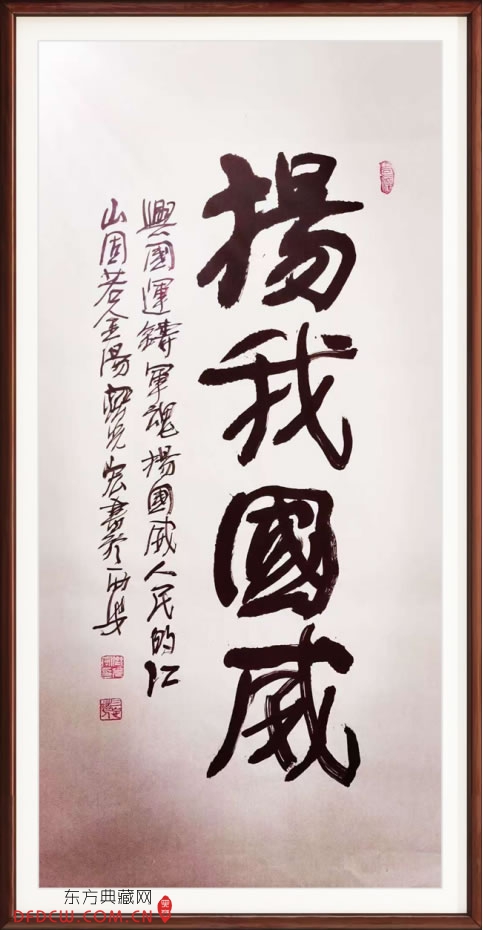 揚我國威
興國運鑄軍魂揚國威人民的江
山固若金湯 書於西安
东方典藏网
DFDCW.COM.CN